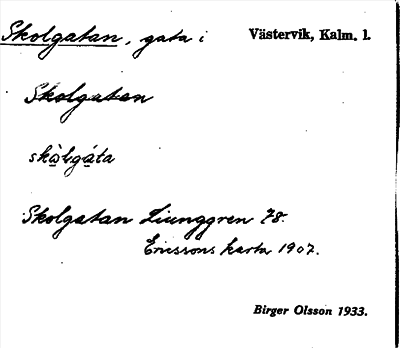 Skolgatan, gata i Västervik, Kalm. l.
Skolgatan
skòlgáta
Skolgatan Ljunggren 78.
Ericssons karta 1907.
Birger Olsson 1933.